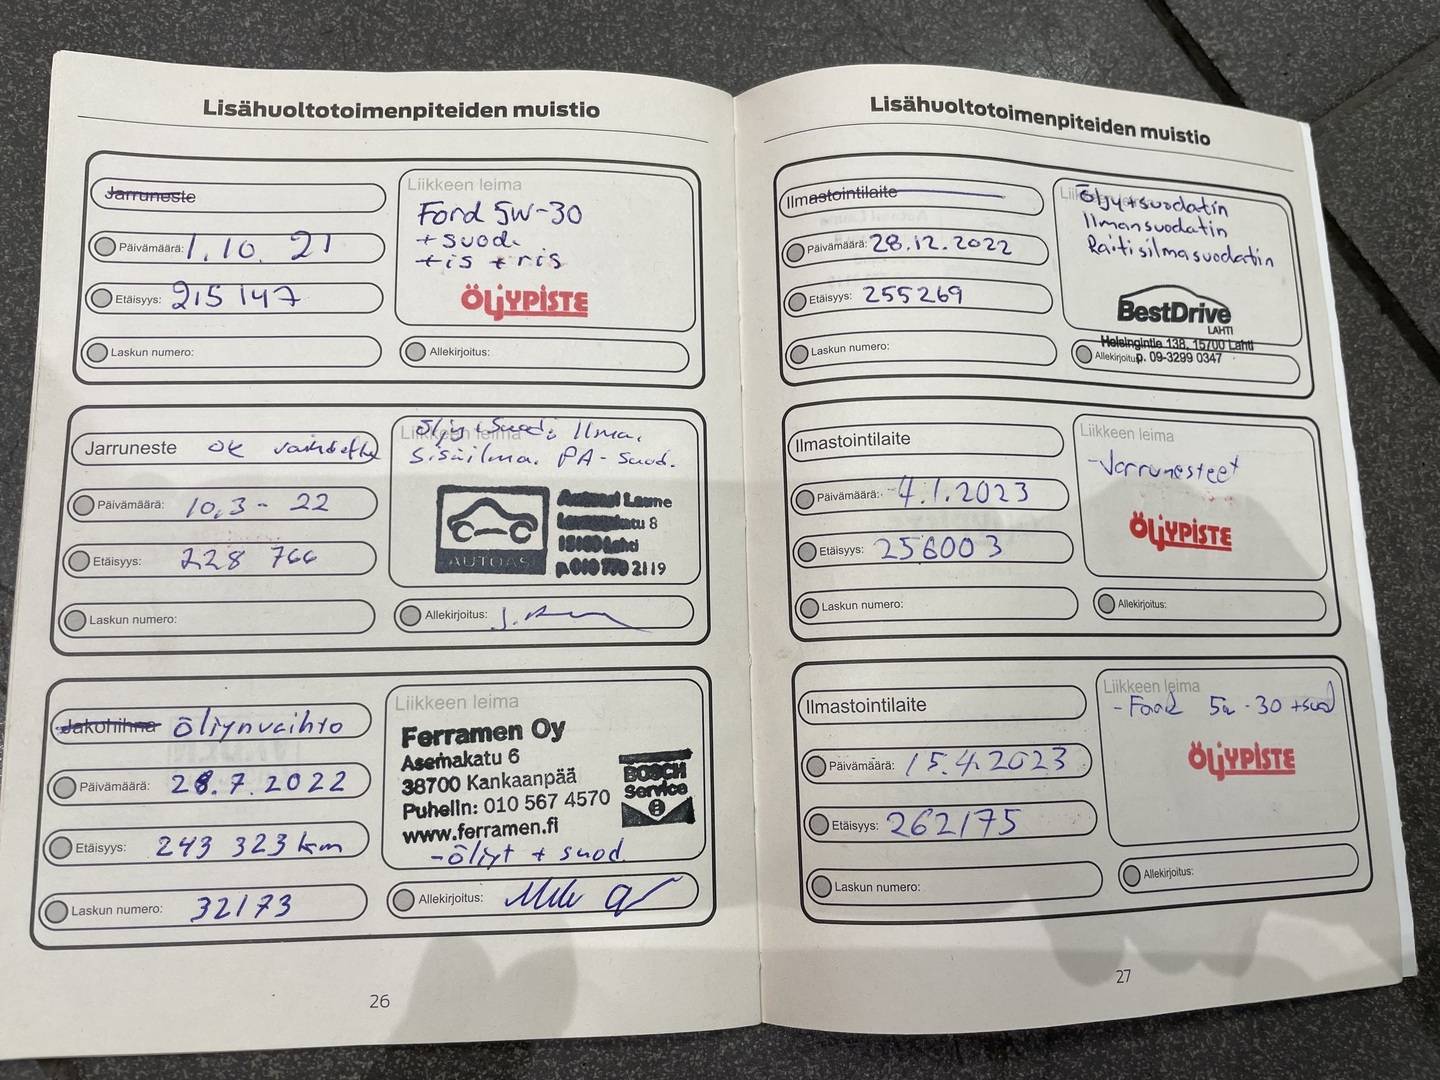 Lisähuoltotoimenpiteiden muistio
Jarruneste
Päivämäärä: 1.10. 21
Etäisyys: 215 147
Laskun numero:
Liikkeen leima
Ford 5W-30
+ suod.
+is +ris
ÖLJYPISTE
Allekirjoitus:
Jarruneste ok vaihdettu
Päivämäärä: 10.3 - 22
Etäisyys: 228 766
Laskun numero:
Liikkeen leima
Öljy + Suod. Ilma.
Sisäilma. PA-Suod.
AUTOASI
Autoasi Laune
8
15100 Lahti
p.010 770 2119
Allekirjoitus:
Jakohihna öljynvaihto
Päivämäärä: 28.7.2022
Etäisyys: 243 323 km
Laskun numero: 32173
Liikkeen leima
Ferramen Oy
Asemakatu 6
38700 Kankaanpää
Puhelin: 010 567 4570
www.ferramen.fi
BOSCH
Service
-öljyt + suod.
Allekirjoitus:
26
Lisähuoltotoimenpiteiden muistio
Ilmastointilaite
Päivämäärä: 28.12.2022
Etäisyys: 255269
Laskun numero:
Öljy+suodatin
Ilmansuodatin
Raitisilmasuodatin
BestDrive
LAHTI
Helsingintie 138, 15700 Lahti
p. 09-3299 0347
Allekirjoitus:
Ilmastointilaite
Päivämäärä: 4.1.2023
Etäisyys: 256003
Laskun numero:
Liikkeen leima
-Jarrunesteet
ÖLJYPISTE
Allekirjoitus:
Ilmastointilaite
Päivämäärä: 15.4.2023
Etäisyys: 262175
Laskun numero:
Liikkeen leima
- Ford 5w-30 +suod
ÖLJYPISTE
Allekirjoitus:
27